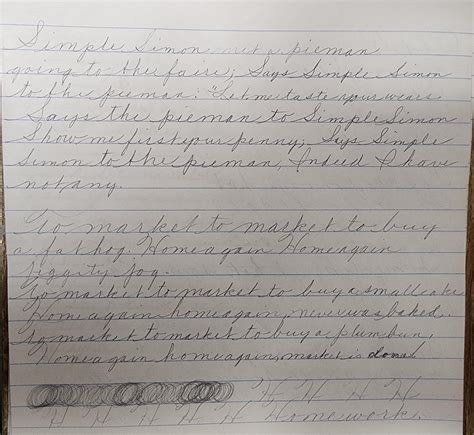 Simple Simon met a pieman
going to the faire; Says Simple Simon
to the pieman: "Let me taste your wears
Says the pieman to Simple Simon
Show me first your penny, Says Simple
Simon to the pieman, Indeed I have
not any.
To market to market to buy
a fat hog. Home again Home again
Jiggity jog.
To market to market to buy a small cake
Home again home again, never was baked.
To market to market to buy a plum bun,
Home again home again, market is done
H H H H
H H H H H Homework.